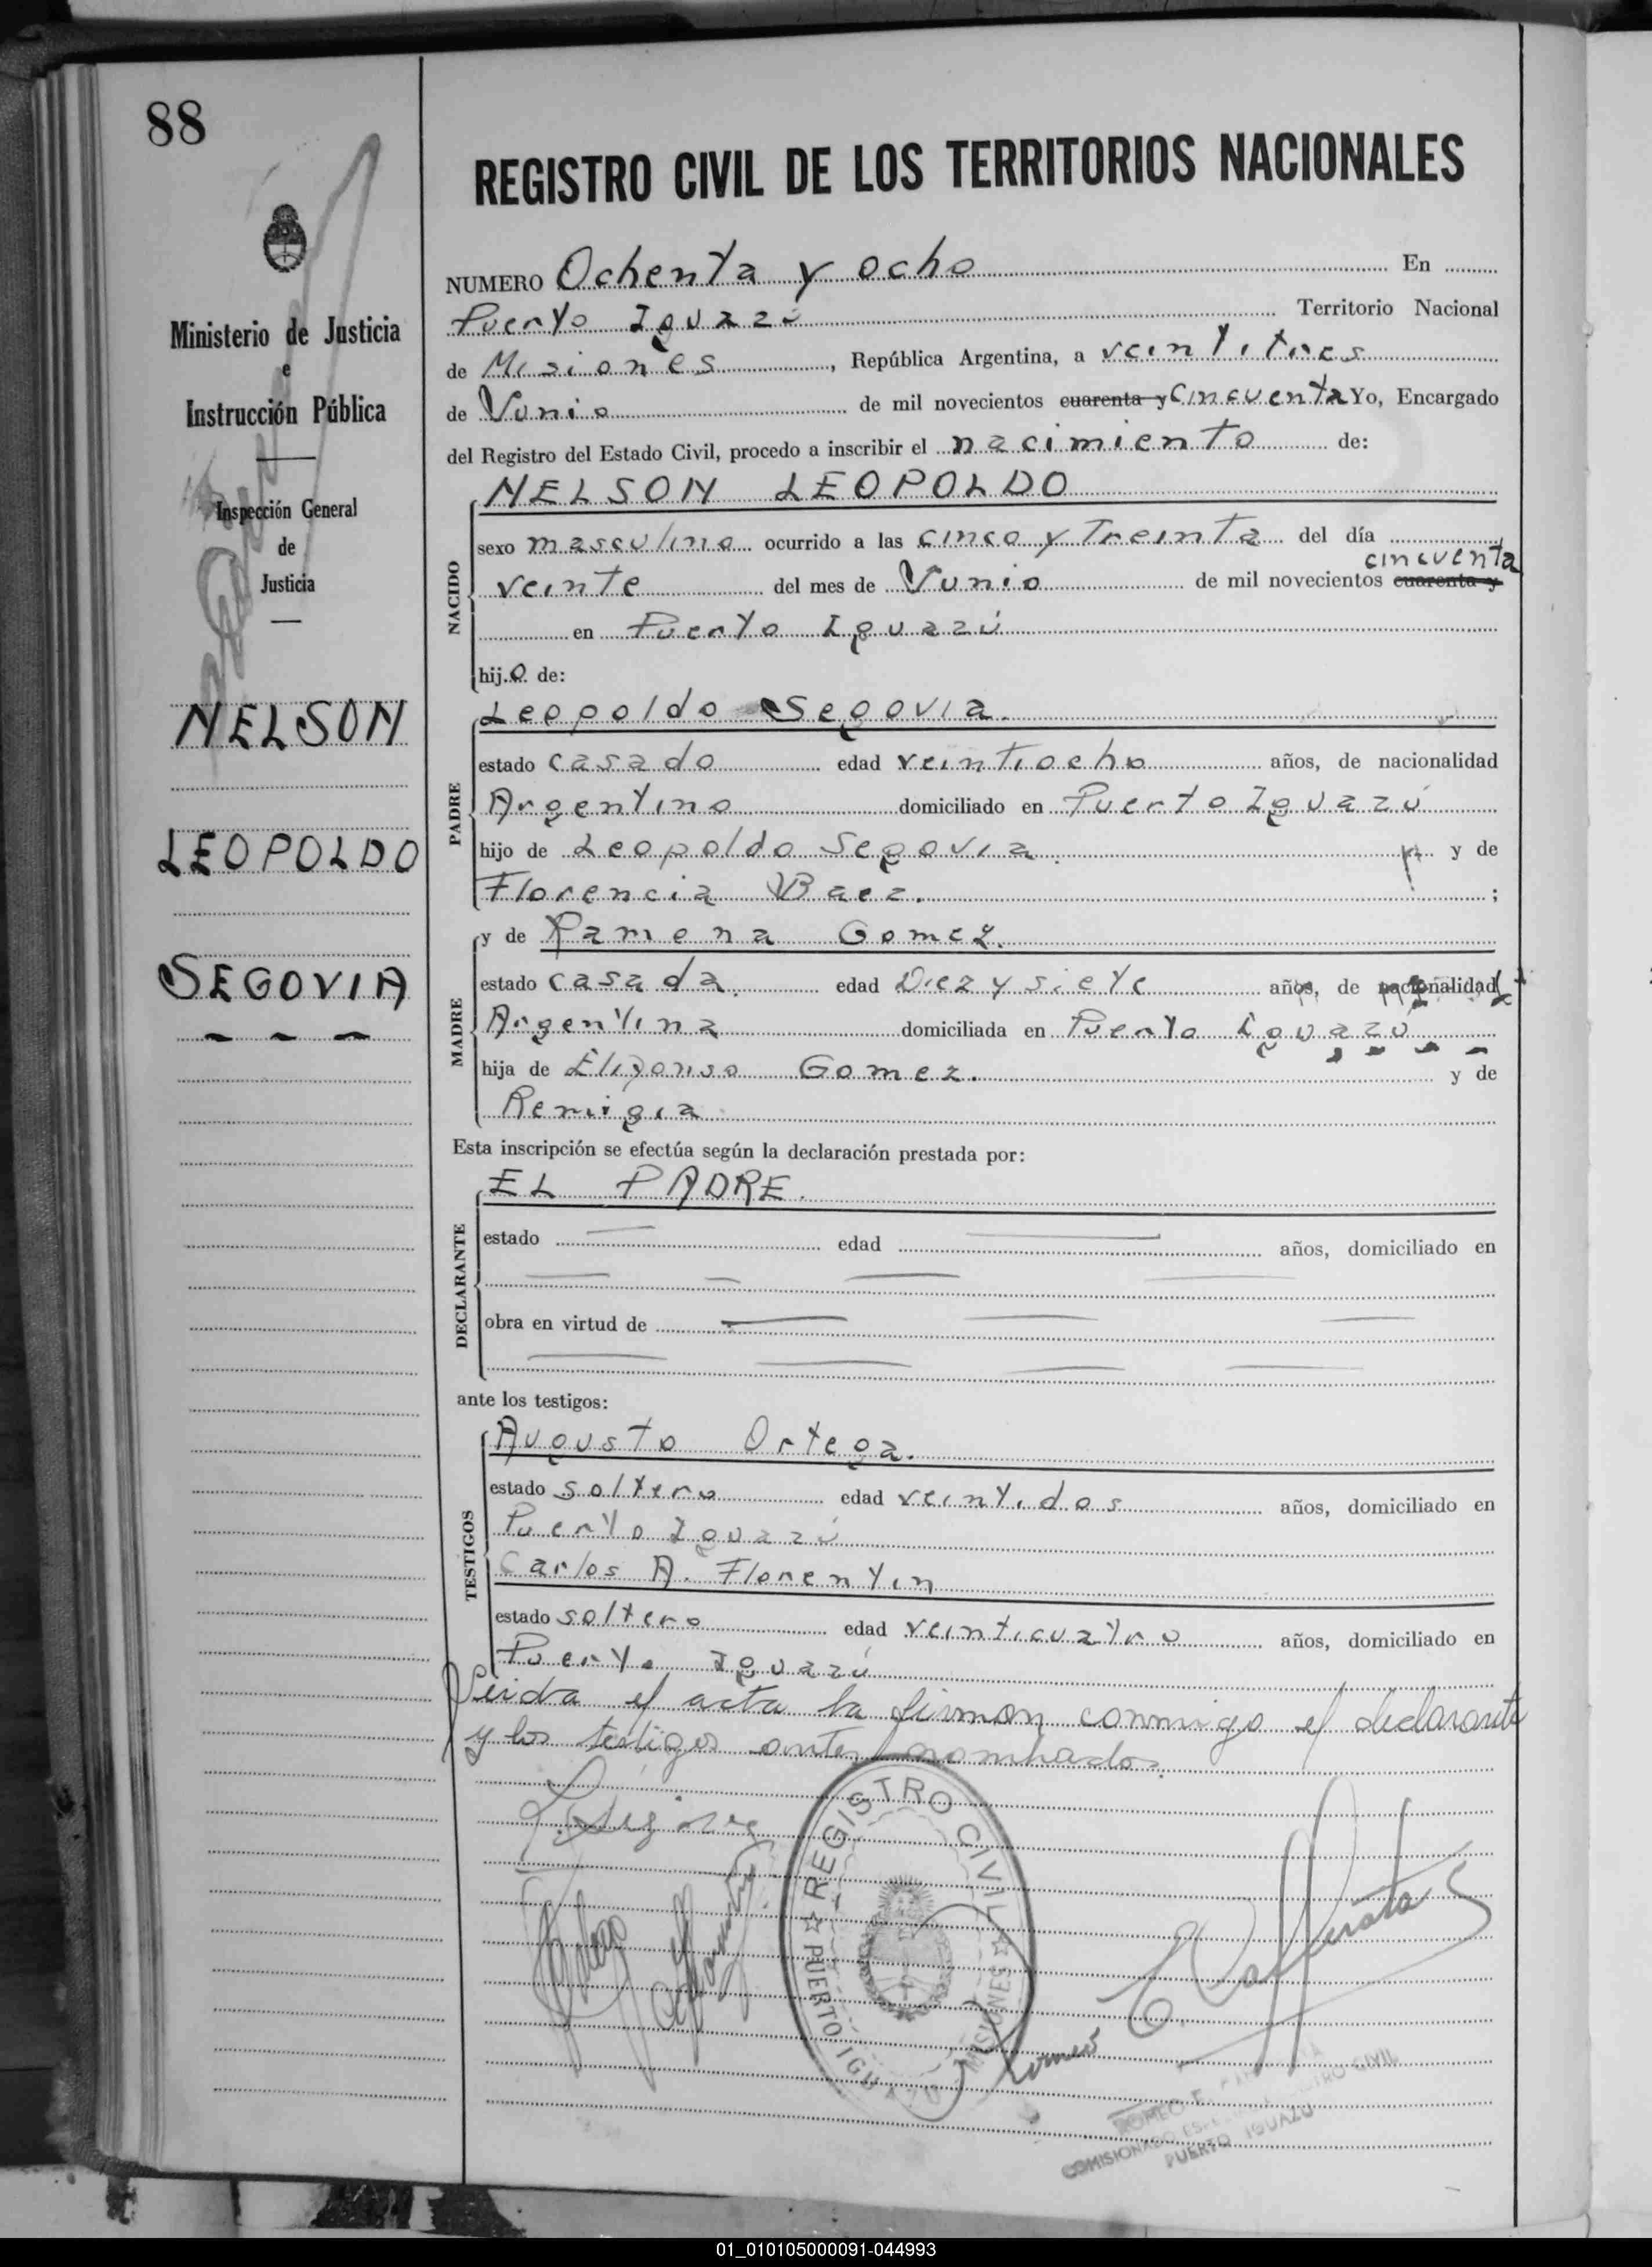 88
REGISTRO CIVIL DE LOS TERRITORIOS NACIONALES
Ministerio de Justicia
e
Instrucción Pública
Inspección General
de
Justicia
NELSON
LEOPOLDO
SEGOVIA
NUMERO Ochenta y ocho En
Puerto Iguazú Territorio Nacional
de Misiones, República Argentina, a veintitres
de Junio de mil novecientos cuarenta y Cincuenta Yo, Encargado
del Registro del Estado Civil, procedo a inscribir el nacimiento de:
NACIDO
NELSON LEOPOLDO
sexo masculino ocurrido a las cinco y treinta del día
cincuenta
veinte del mes de Junio de mil novecientos cuarenta y
en Puerto Iguazú
hijo de:
PADRE
Leopoldo Segovia.
estado casado edad veintiocho años, de nacionalidad
Argentino domiciliado en Puerto Iguazú
hijo de Leopoldo Segovia. y de
Florencia Baez. ;
MADRE
y de Ramona Gomez.
estado casada. edad Diez y siete años, de nacionalidad
Argentina domiciliada en Puerto Iguazú
hija de Gomez. y de
Remigia
Esta inscripción se efectúa según la declaración prestada por:
DECLARANTE
EL PADRE.
estado edad años, domiciliado en
obra en virtud de
ante los testigos:
TESTIGOS
Augusto Ortega.
estado soltero edad veintidos años, domiciliado en
Puerto Iguazú
Carlos A. Florentin
estado soltero edad veinticuatro años, domiciliado en
Puerto Iguazú
Leida el acta la firman conmigo el declarante
y los testigos antes nombrados.
REGISTRO CIVIL
PUERTO IGUAZU MISIONES
Romeo E.
ROMEO E.
COMISIONADO REGISTRO CIVIL
PUERTO IGUAZU
01_010105000091-044993